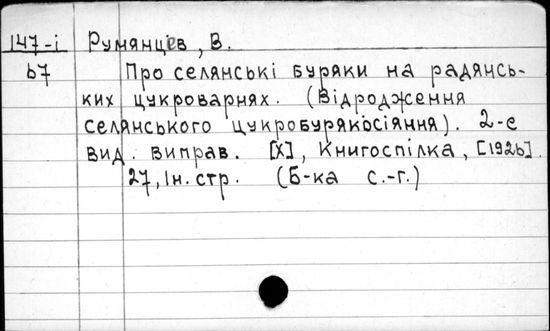 147-і Румянцев, В.
67 Про селянські буряки на радянсь-
ких цукроварнях. (Відродження
селянського цукробурякосіяння). 2-е
вид. виправ. [Х], Книгоспілка, [1926].
27, Ін. стр. (Б-ка с.-г.)